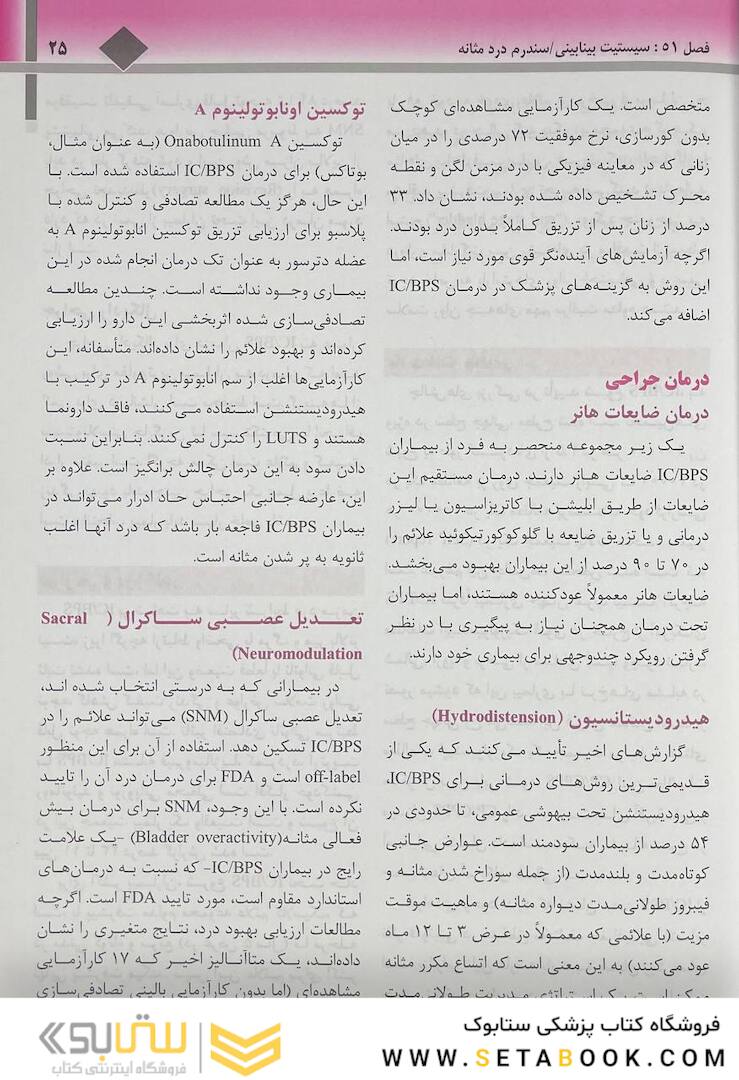 فصل ۵۱: سیستیت بینابینی/سندرم درد مثانه
۲۵
متخصص است. یک کارآزمایی مشاهده‌ای کوچک
بدون کورسازی، نرخ موفقیت ۷۲ درصدی را در میان
زنانی که در معاینه فیزیکی با درد مزمن لگن و نقطه
محرک تشخیص داده شده بودند، نشان داد. ۳۳
درصد از زنان پس از تزریق کاملاً بدون درد بودند.
اگرچه آزمایش‌های آینده‌نگر قوی مورد نیاز است، اما
این روش به گزینه‌های پزشک در درمان IC/BPS
اضافه می‌کند.
درمان جراحی
درمان ضایعات هانر
یک زیر مجموعه منحصر به فرد از بیماران
IC/BPS ضایعات هانر دارند. درمان مستقیم این
ضایعات از طریق ابلیشن با کاتریزاسیون یا لیزر
درمانی و یا تزریق ضایعه با گلوکوکورتیکوئید علائم را
در ۷۰ تا ۹۰ درصد از این بیماران بهبود می‌بخشد.
ضایعات هانر معمولاً عودکننده هستند، اما بیماران
تحت درمان همچنان نیاز به پیگیری با در نظر
گرفتن رویکرد چندوجهی برای بیماری خود دارند.
هیدرودیستانسیون (Hydrodistension)
گزارش‌های اخیر تأیید می‌کنند که یکی از
قدیمی‌ترین روش‌های درمانی برای IC/BPS،
هیدرودیستنشن تحت بیهوشی عمومی، تا حدودی در
۵۴ درصد از بیماران سودمند است. عوارض جانبی
کوتاه‌مدت و بلندمدت (از جمله سوراخ شدن مثانه و
فیبروز طولانی‌مدت دیواره مثانه) و ماهیت موقت
مزیت (با علائمی که معمولاً در عرض ۳ تا ۱۲ ماه
عود می‌کنند) به این معنی است که اتساع مکرر مثانه
توکسین اونابوتولینوم A
توکسین Onabotulinum A (به عنوان مثال،
بوتاکس) برای درمان IC/BPS استفاده شده است. با
این حال، هرگز یک مطالعه تصادفی و کنترل شده با
پلاسبو برای ارزیابی تزریق توکسین انابوتولینوم A به
عضله دترسور به عنوان تک درمان انجام شده در این
بیماری وجود نداشته است. چندین مطالعه
تصادفی‌سازی شده اثربخشی این دارو را ارزیابی
کرده‌اند و بهبود علائم را نشان داده‌اند. متأسفانه، این
کارآزمایی‌ها اغلب از سم انابوتولینوم A در ترکیب با
هیدرودیستنشن استفاده می‌کنند، فاقد دارونما
هستند و LUTS را کنترل نمی‌کنند. بنابراین نسبت
دادن سود به این درمان چالش برانگیز است. علاوه بر
این، عارضه جانبی احتباس حاد ادرار می‌تواند در
بیماران IC/BPS فاجعه بار باشد که درد آنها اغلب
ثانویه به پر شدن مثانه است.
تعدیل عصبی ساکرال (Sacral
Neuromodulation)
در بیمارانی که به درستی انتخاب شده اند،
تعدیل عصبی ساکرال (SNM) می‌تواند علائم را در
IC/BPS تسکین دهد. استفاده از آن برای این منظور
off-label است و FDA برای درمان درد آن را تایید
نکرده است. با این وجود، SNM برای درمان بیش
فعالی مثانه(Bladder overactivity) -یک علامت
رایج در بیماران IC/BPS- که نسبت به درمان‌های
استاندارد مقاوم است، مورد تایید FDA است. اگرچه
مطالعات ارزیابی بهبود درد، نتایج متغیری را نشان
داده‌اند، یک متاآنالیز اخیر که ۱۷ کارآزمایی
مشاهده‌ای (اما بدون کارآزمایی بالینی تصادفی‌سازی
فروشگاه کتاب پزشکی ستابوک
WWW.SETABOOK.COM
ستابوک
فروشگاه اینترنتی کتاب